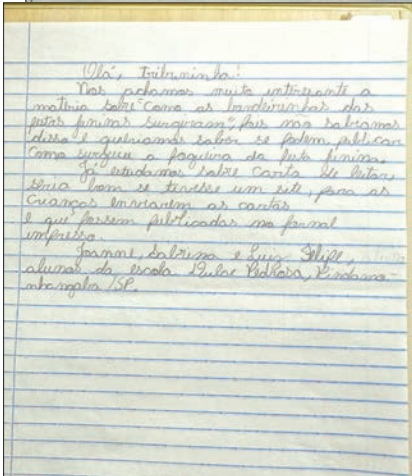 Olá, Tribuninha!
Nos achamos muito interesante a
materia sobre "Como as bandeirinhas das
festas juninas surgiram", pois não sabiamos
disso e queriamos saber se podem publicar
como surgiu a fogueira da festa junina.
Já estudamos sobre carta de leitor,
seria bom se tivesse um site, para as
crianças enviarem as cartas
e que fossem publicadas no jornal
impresso.
Joanne, Sabrina e Luiz Felipe,
alunos da escola Dulce Pedrosa, Pindamo-
nhangaba/SP.